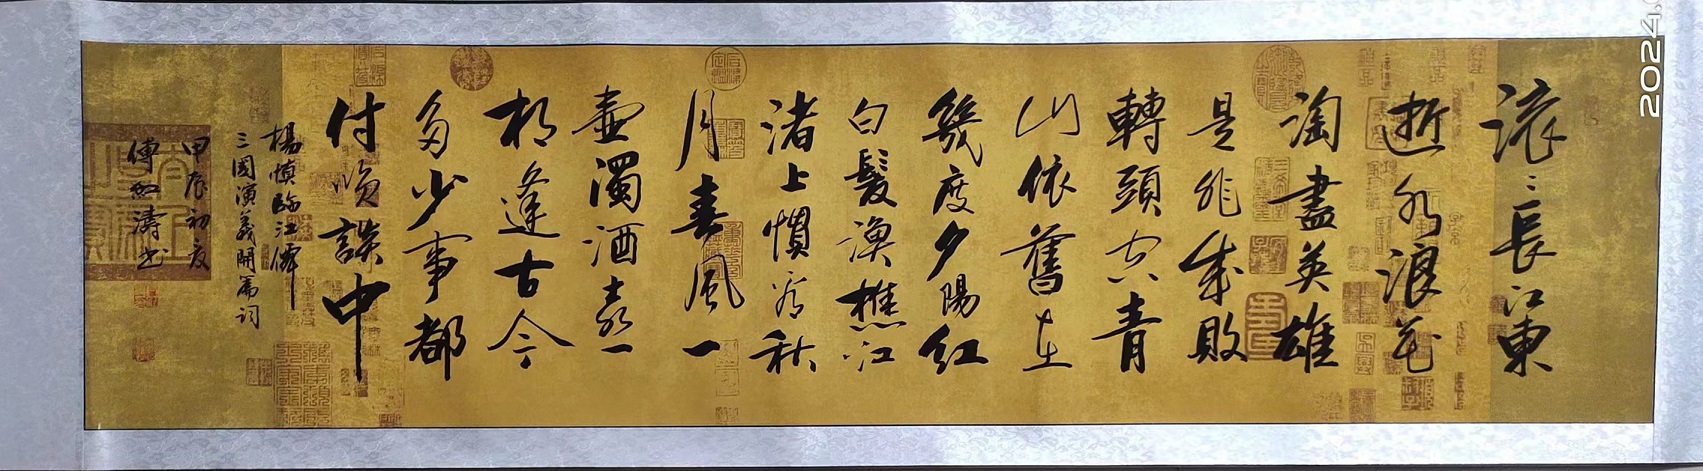 滚〻長江東
逝水浪花
淘盡英雄
是非成敗
轉頭空青
山依舊在
幾度夕陽紅
白髮漁樵江
渚上慣看秋
月春風一
壺濁酒喜
相逢古今
多少事都
付笑談中
楊慎臨江僊
三國演義開篇詞
甲辰初夏
傅 濤书
2024